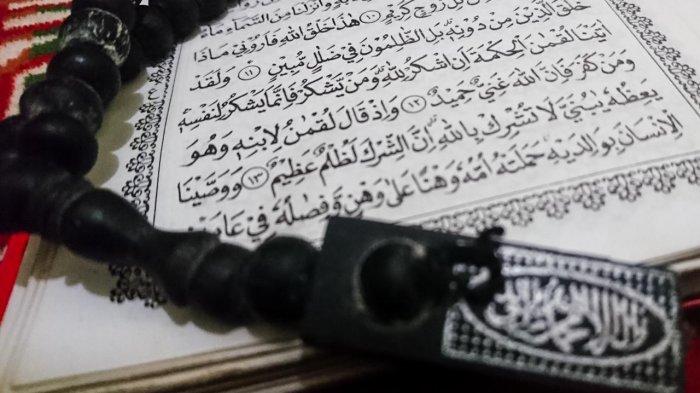 كُلِّ زَوْجٍ كَرِيْمٍ ١٠ هٰذَا خَلْقُ اللّٰهِ فَاَرُوْنِيْ مَاذَا
خَلَقَ الَّذِيْنَ مِنْ دُوْنِهٖ ۗ بَلِ الظّٰلِمُوْنَ فِيْ ضَلٰلٍ مُّبِيْنٍ ١١ وَلَقَدْ
اٰتَيْنَا لُقْمٰنَ الْحِكْمَةَ اَنِ اشْكُرْ لِلّٰهِ ۗ وَمَنْ يَّشْكُرْ فَاِنَّمَا يَشْكُرُ لِنَفْسِهٖ ۚ
وَمَنْ كَفَرَ فَاِنَّ اللّٰهَ غَنِيٌّ حَمِيْدٌ ١٢ وَاِذْ قَالَ لُقْمٰنُ لِابْنِهٖ وَهُوَ
يَعِظُهٗ يٰبُنَيَّ لَا تُشْرِكْ بِاللّٰهِ ۗ اِنَّ الشِّرْكَ لَظُلْمٌ عَظِيْمٌ ١٣ وَوَصَّيْنَا
الْاِنْسَانَ بِوَالِدَيْهِ ۚ حَمَلَتْهُ اُمُّهٗ وَهْنًا عَلٰى وَهْنٍ وَّفِصٰلُهٗ فِيْ عَامَيْنِ